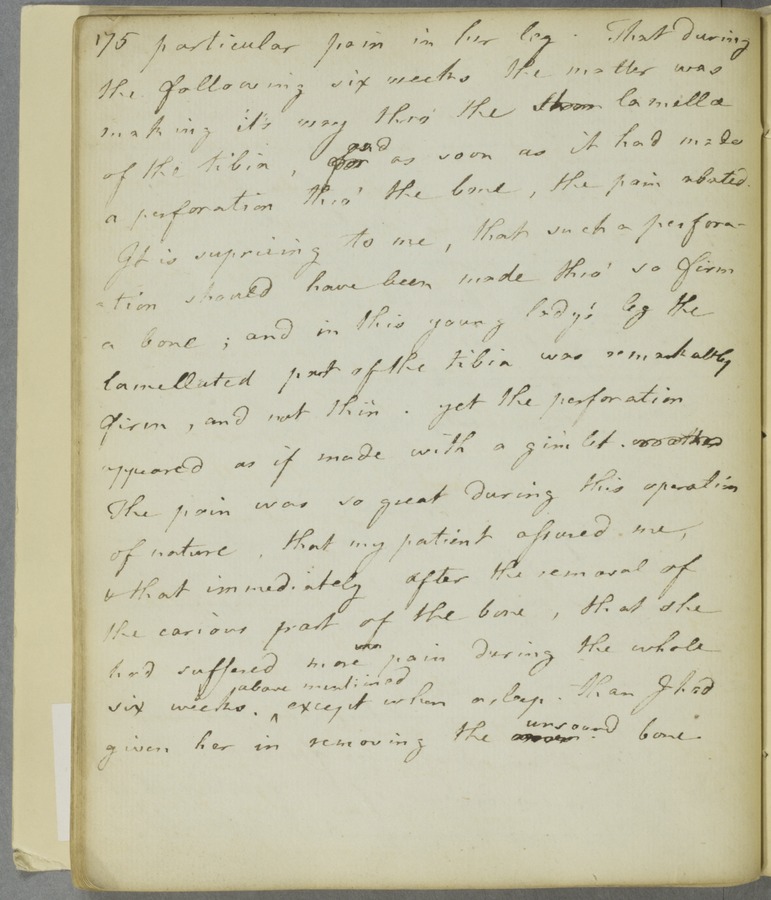 175 particular pain in her leg. That during
the following six weeks the matter was
making it's way thro' the lamellæ
of the tibia, and as soon as it had made
a perforation thro' the bone, the pain abated.
It is suprizing to me, that such a perfora-
-tion should have been made thro' so firm
a bone; and in this young lady's leg the
lamellated part of the tibia was remarkably
firm, and not thin. yet the perforation
appeared as if made with a gimlet.
The pain was so great during this operation
of nature, that my patient assured me,
& that immediately after the removal of
the carious part of the bone, that she
had suffered more pain during the whole
six weeks. above mentioned except when asleep. than I had
given her in removing the unsound bone.